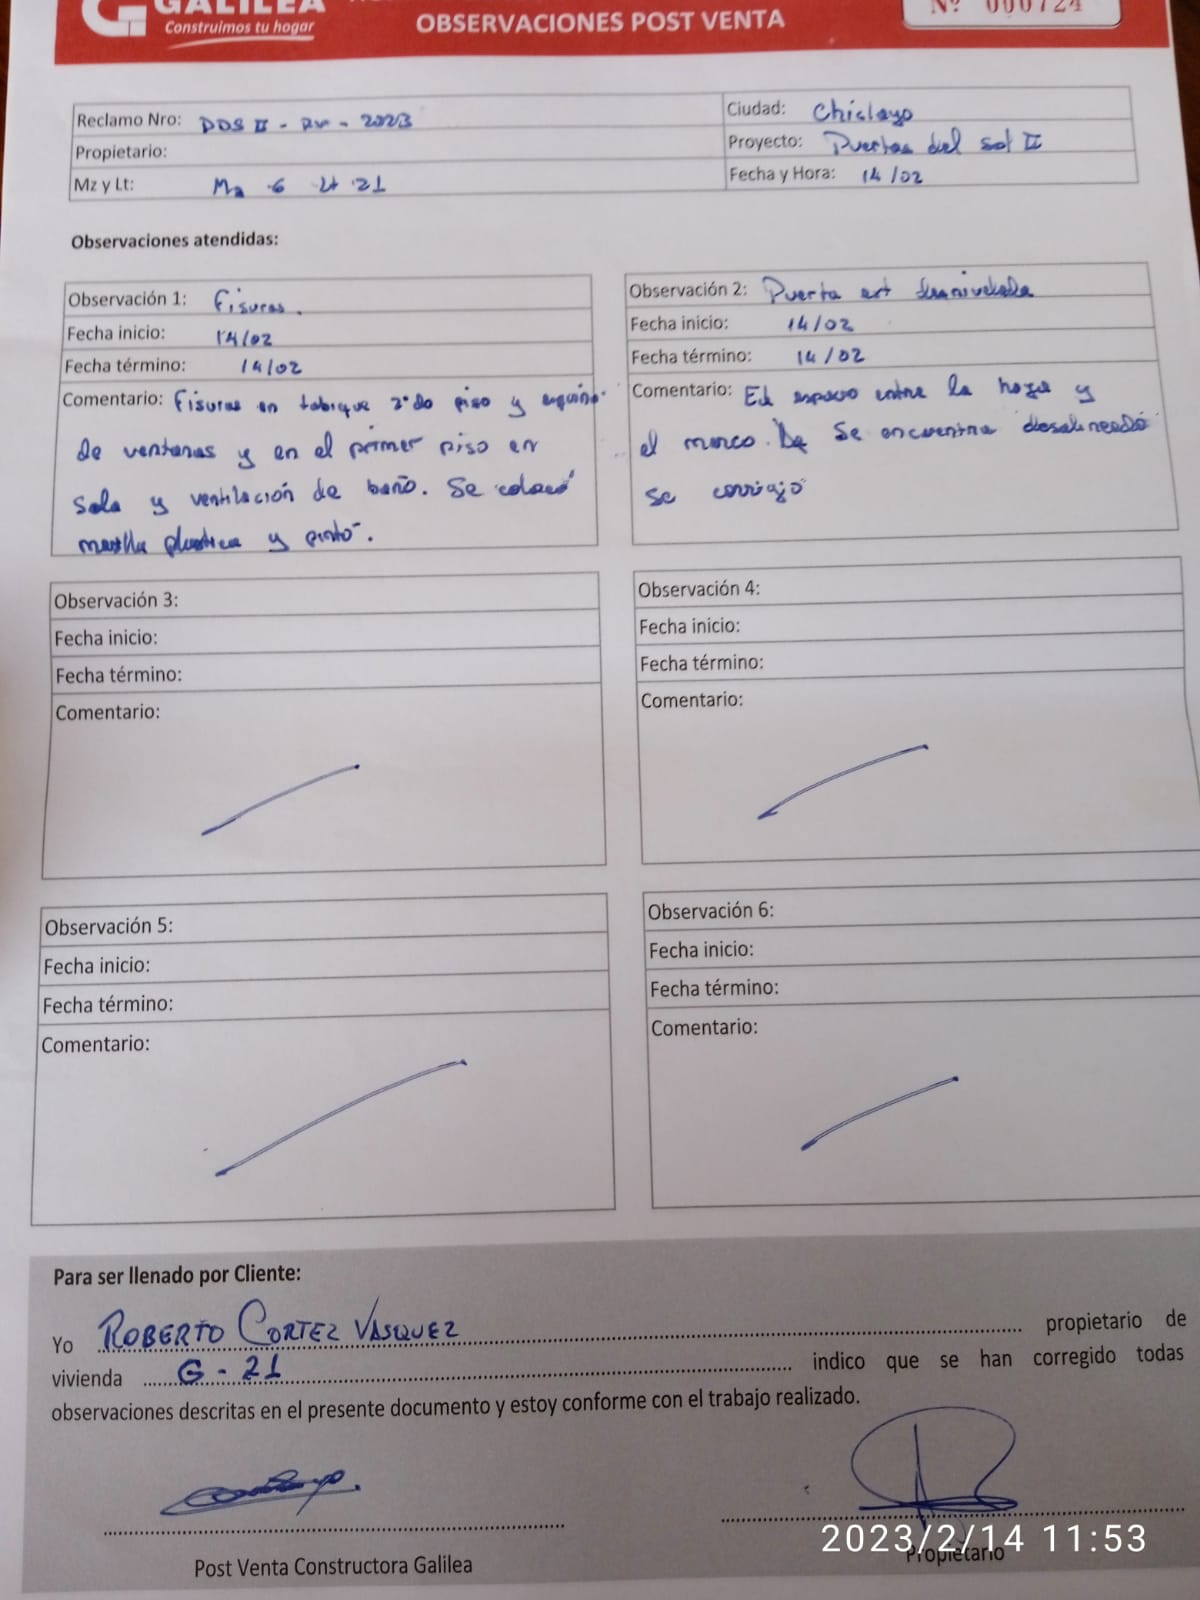 GALILEA
Construimos tu hogar
OBSERVACIONES POST VENTA
N° 000724
Reclamo Nro: PDS II - - 2023
Ciudad: Chiclayo
Propietario:
Proyecto: Puertas del sol II
Mz y Lt: Mz G Lt 21
Fecha y Hora: 14/02
Observaciones atendidas:
Observación 1: Fisuras.
Fecha inicio: 14/02
Fecha término: 14/02
Comentario: Fisuras en tabique 2°do piso y
de ventanas y en el primer piso en
sala y ventilación de baño. Se colocó
masilla plastica y pinto.
Observación 2: Puerta ext desnivelada
Fecha inicio: 14/02
Fecha término: 14/02
Comentario: El espacio entre la hoja y
el marco. Se encuentra desalineado
se corrigio
Observación 3:
Fecha inicio:
Fecha término:
Comentario:
Observación 4:
Fecha inicio:
Fecha término:
Comentario:
Observación 5:
Fecha inicio:
Fecha término:
Comentario:
Observación 6:
Fecha inicio:
Fecha término:
Comentario:
Para ser llenado por Cliente:
Yo ROBERTO CORTEZ VASQUEZ propietario de
vivienda G - 21 indico que se han corregido todas
observaciones descritas en el presente documento y estoy conforme con el trabajo realizado.
Post Venta Constructora Galilea
Propietario
2023/2/14 11:53